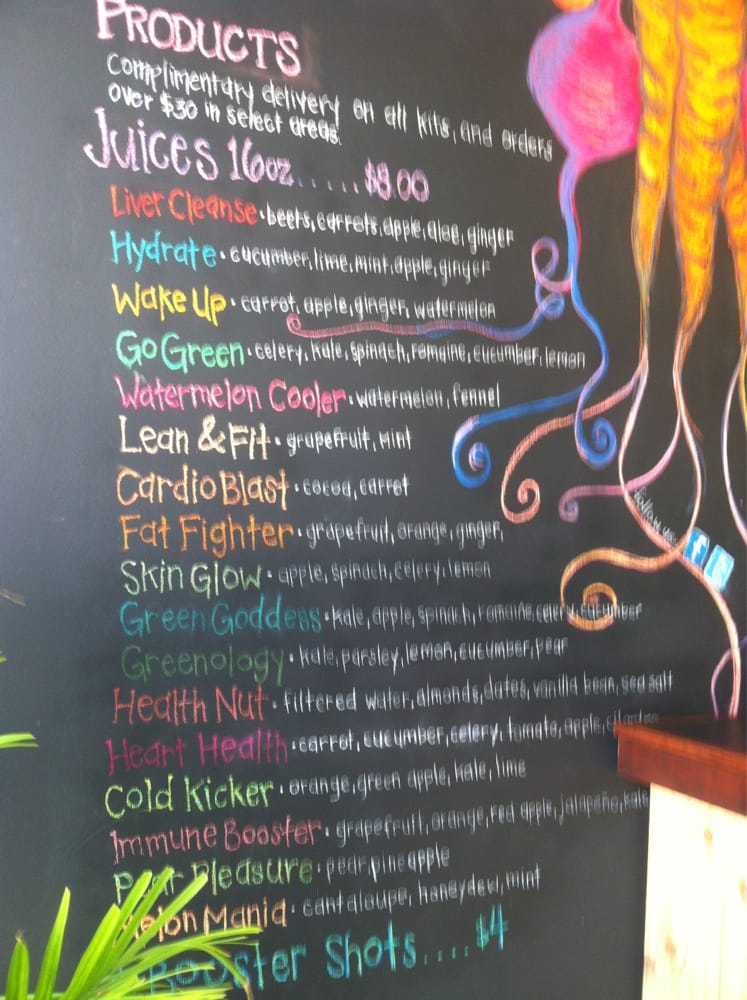 PRODUCTS
Complimentary delivery on all kits, and orders
over $30 in select areas.
JUICES 16oz.....$8.00
Liver Cleanse · beets, carrots, apple, aloe, ginger
Hydrate · cucumber, lime, mint, apple, ginger
Wake Up · carrot, apple, ginger, watermelon
Go Green · celery, kale, spinach, romaine, cucumber, lemon
Watermelon Cooler · watermelon, fennel
Lean & Fit · grapefruit, mint
Cardio Blast · cocoa, carrot
Fat Fighter · grapefruit, orange, ginger,
Skin Glow · apple, spinach, celery, lemon
Green Goddess · kale, apple, spinach, romaine, celery, cucumber
Greenology · kale, parsley, lemon, cucumber, pear
Health Nut · filtered water, almonds, dates, vanilla bean, sea salt
Heart Health · carrot, cucumber, celery, tomato, apple, cilantro
Cold Kicker · orange, green apple, kale, lime
Immune Booster · grapefruit, orange, red apple, jalapeño, kale
Pear Pleasure · pear, pineapple
Melon Mania · cantaloupe, honeydew, mint
Booster Shots....$4
follow us:
f